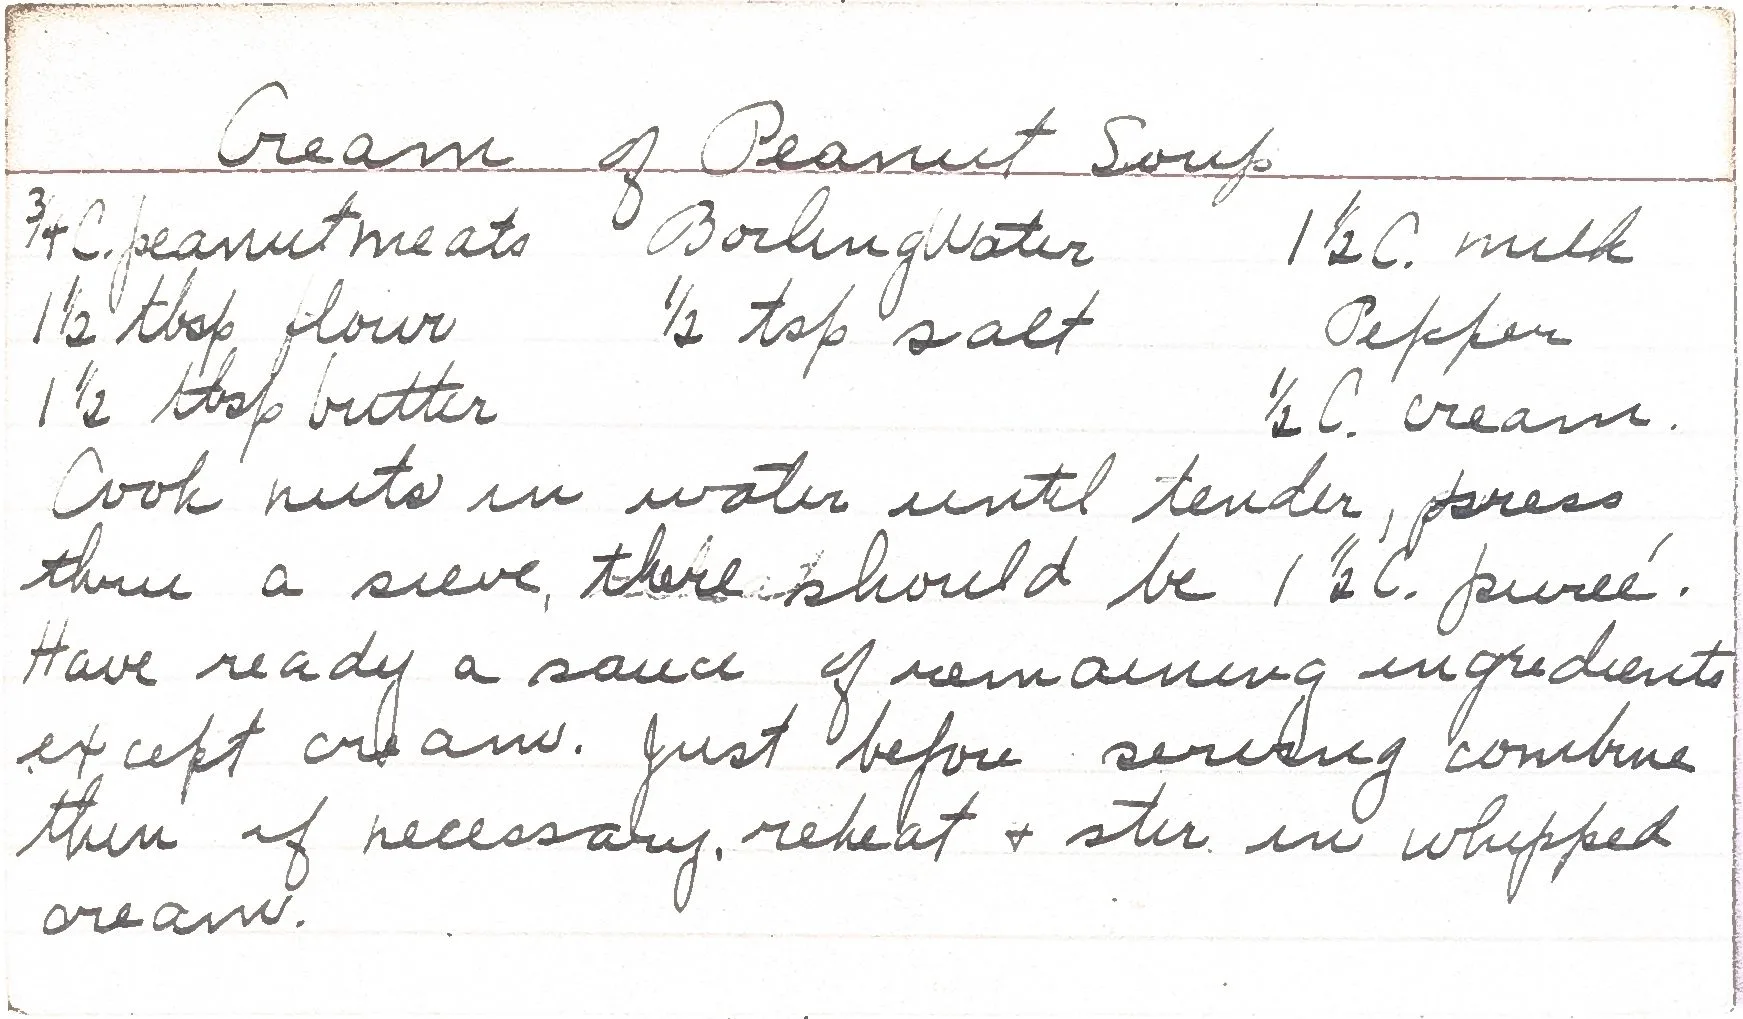 Cream of Peanut Soup
3/4 C. peanut meats Boiling Water 1 1/2 C. milk
1 1/2 tbsp flour 1/2 tsp salt Pepper
1 1/2 tbsp butter 1/2 C. cream.
Cook nuts in water until tender, press
thru a sieve, there should be 1 1/2 C. pureé.
Have ready a sauce of remaining ingredients
except cream. Just before serving combine
then if necessary, reheat + stir in whipped
cream.